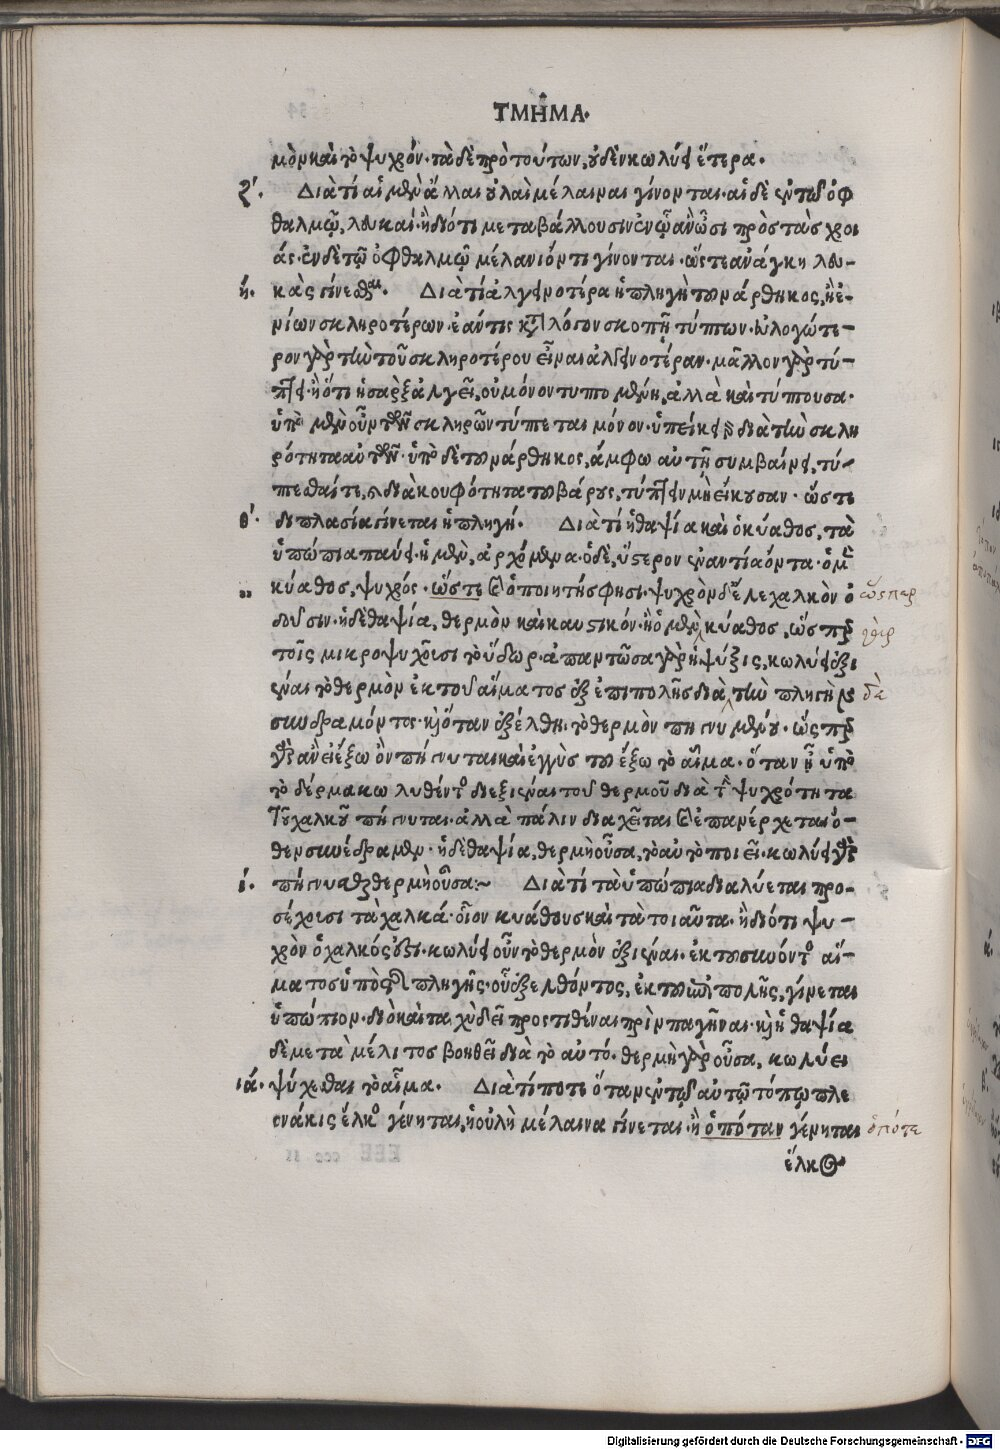 ΤΜΗ͂ΜΑ.
μὸν καὶ τὸ ψυχρόν. τὰ δὲ πρὸ τούτων, οὐδὲν κωλύει ἕτερα.
ζ΄. Διὰ τί αἱ μὲν ἄλλαι οὐλαὶ μέλαιναι γίνονται. αἱ δὲ ἐν τῷ ὀφ
θαλμῷ, λευκαί. ἢ διότι μεταβάλλουσιν ἐν ᾧ ἂν ὦσι πρὸς τὰς χροι
άς. ἐν δὲ τῷ ὀφθαλμῷ μέλανι ὄντι γίνονται. ὥστε ἀνάγκη λευ-
η΄. κὰς γίνεσθαι. Διὰ τί ἀλγεινοτέρα ἡ πληγὴ τοῦ νάρθηκος, ἢ ἐ-
νίων σκληροτέρων. ἐάν τις κατὰ λόγον σκοπῇ τύπτων. εὐλογώτε-
ρον γὰρ τὴν τοῦ σκληροτέρου εἶναι ἀλγεινοτέραν. μᾶλλον γὰρ τύ-
πτει. ἢ ὅτι ἡ σὰρξ ἀλγεῖ, οὐ μόνον τυπτομένη, ἀλλὰ καὶ τύπτουσα.
ὑπὸ μὲν οὖν τῶν σκληρῶν τύπτεται μόνον. ὑπείκει γὰρ διὰ τὴν σκλη
ρότητα αὐτῶν. ὑπὸ δὲ τοῦ νάρθηκος, ἄμφω αὐτῇ συμβαίνει, τύ-
πτεσθαί τε, καὶ διὰ κουφότητα τοῦ βάρους, τύπτειν μὴ εἴκουσαν. ὥστε
θ΄. διπλασία γίνεται ἡ πληγή. Διὰ τί ἡ θαψία καὶ ὁ κύαθος, τὰ
ὑπώπια παύει. ἡ μὲν, ἀρχόμενα. ὁ δὲ, ὕστερον ἐναντία ὄντα. ὁ μὲν
κύαθος, ψυχρός. ὥστε καὶ ὁ ποιητής φησι. ψυχρὸν δ' ἕλε χαλκὸν ὀ ὥσπερ
δοῦσιν. ἡ δὲ θαψία, θερμὸν καὶ καυστικόν. ἢ ὁ μὲν κύαθος, ὥσπερ
τοῖς μικροψυχοῦσι τὸ ὕδωρ. ἀπαντῶσα γὰρ ἡ ψύξις, κωλύει ἐξι
έναι τὸ θερμὸν ἐκ τοῦ αἵματος ἐξ ἐπιπολῆς διὰ τὴν πληγὴν δὲ
συνδραμόντος. καὶ ὅταν ἐξέλθῃ τὸ θερμὸν πηγνυμένου. ὥσπερ
γὰρ ἂν εἰ ἔξω ὂν πήγνυται καὶ ἐγγὺς τοῦ ἔξω τὸ αἷμα. ὅταν ᾖ ὑπὸ
τὸ δέρμα κωλυθέντος διεξιέναι τοῦ θερμοῦ διὰ τὴν ψυχρότητα
τοῦ χαλκοῦ πήγνυται. ἀλλὰ πάλιν διαχεῖται καὶ ἐπανέρχεται ὅ-
θεν συνέδραμεν. ἡ δὲ θαψία, θερμὴ οὖσα, τὸ αὐτὸ ποιεῖ. κωλύει γὰρ
ι΄. πήγνυσθαι θερμὴ οὖσα:~ Διὰ τί τὰ ὑπώπια διαλύεται προ-
σέχουσι τὰ χαλκᾶ. οἷον κυάθους καὶ τὰ τοιαῦτα. ἢ διότι ψυ-
χρὸν ὁ χαλκός ἐστι. κωλύει οὖν τὸ θερμὸν ἐξιέναι. ἐκ τοῦ συνιόντος αἵ-
ματος ὑπὸ τῆς πληγῆς. οὗ ἐξελθόντος, ἐκ τοῦ ἐπιπολῆς, γίνεται
ὑπώπιον. διὸ καὶ ταχὺ δεῖ προστιθέναι πρὶν παγῆναι. καὶ ἡ θαψία
δὲ μετὰ μέλιτος βοηθεῖ διὰ τὸ αὐτό. θερμὴ γὰρ οὖσα, κωλύει
ια΄. ψύχεσθαι τὸ αἷμα. Διὰ τί ποτε ὅταν ἐν τῷ αὐτῷ τόπῳ πλε
ονάκις ἕλκος γένηται, ἡ οὐλὴ μέλαινα γίνεται. ἢ ὁπόταν γένηται ὁπότε
ἕλκος
Digitalisierung gefördert durch die Deutsche Forschungsgemeinschaft - DFG